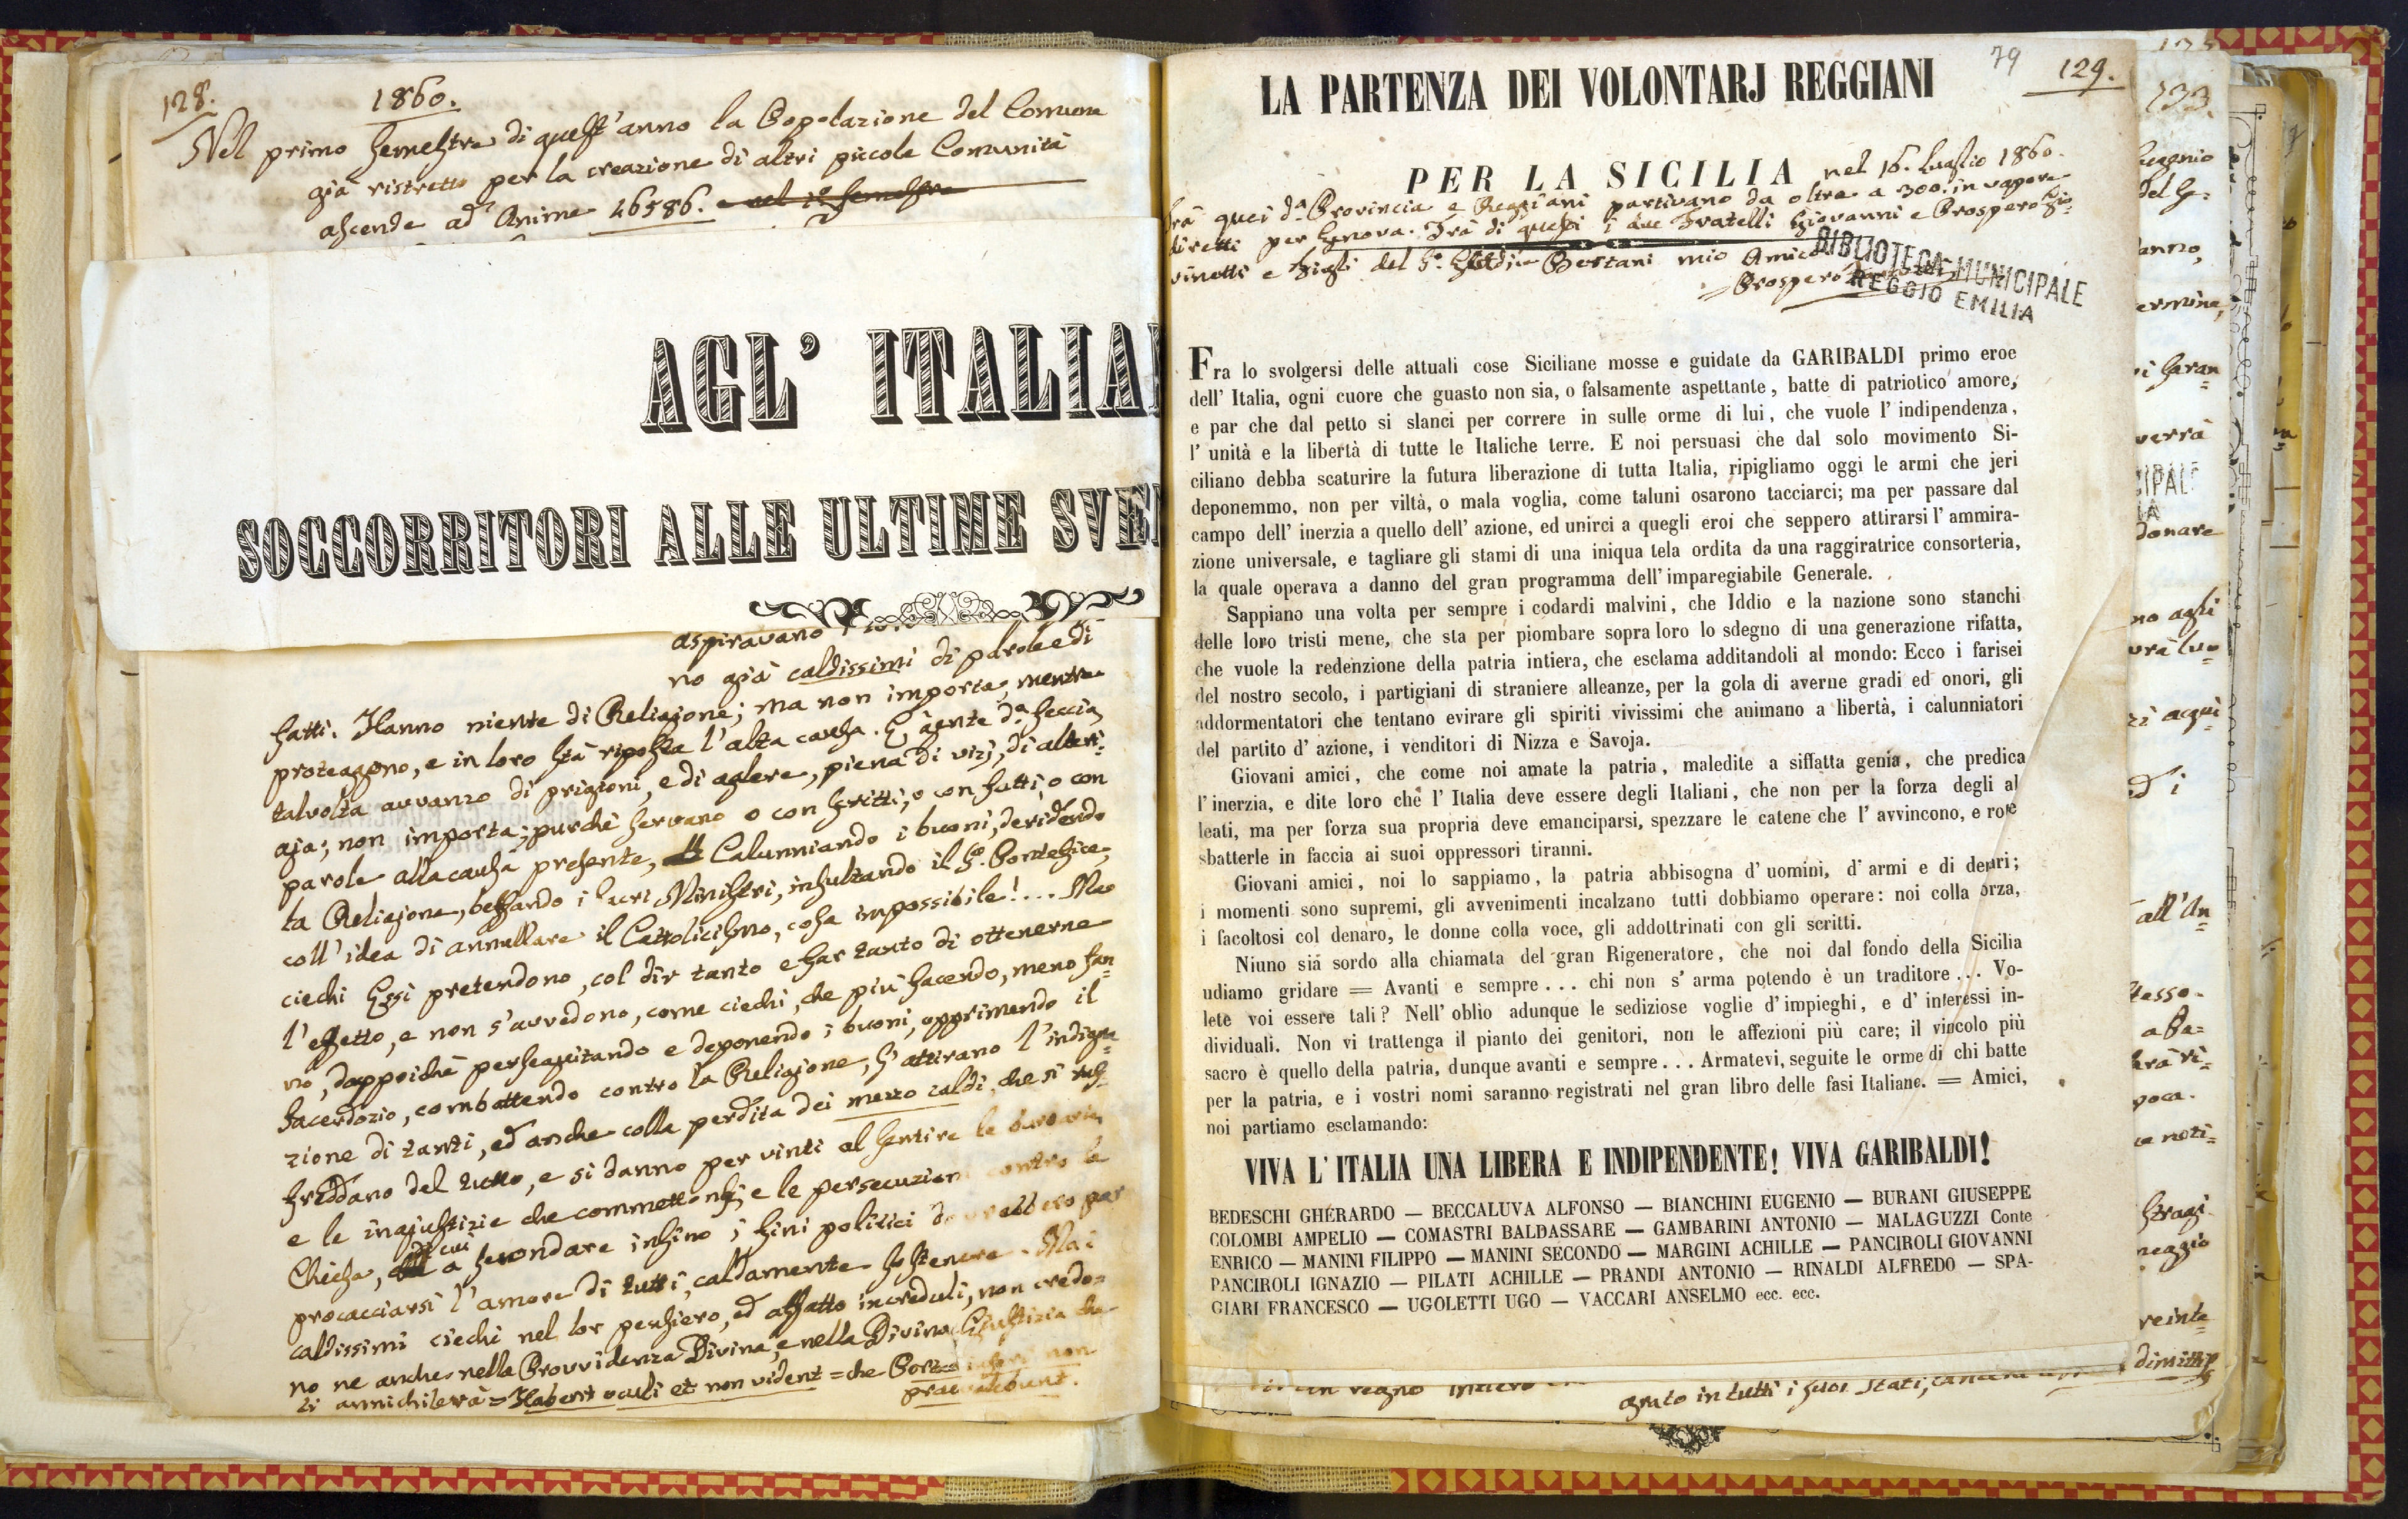 128.
1860.
Nel primo semestre di quest'anno la Popolazione del Comune
già ristretto per la creazione di altri piccole Comunità
ascende ad Anime 46586. e nel 2° semestre
AGL' ITALIA
SOCCORRITORI ALLE ULTIME SVE
aspiravano
no già caldissimi di parole e di
fatti. Hanno niente di Religione; ma non importa, mentre
proteggono, e in loro stà riposta l'alta causa. È gente d.a feccia,
talvolta avvanzo di prigioni, e di galere, piena di vizj, di alteri=
gia; non importa; purchè servano o con scritti, o con fatti, o con
parole alla causa presente, Calunniando i buoni, deridendo
la Religione, beffando i sacri Ministri, insultando il S.o Pontefice,
coll'idea di annullare il Cattolicismo, cosa impossibile!.... Ma
ciechi Essi pretendono, col dir tanto e far tanto di ottenerne
l'effetto, e non s'avvedono, come ciechi, che più facendo, meno fan=
no, dappoichè perseguitando e deponendo i buoni, opprimendo il
Sacerdozio, combattendo contro la Religione, s'attirano l'indigna=
zione di tanti, ed anche colla perdita dei mezzo caldi, che si raf=
freddano del tutto, e si danno per vinti al sentire le
e le ingiustizie che commettonsi, e le persecuzioni contro la
Chiesa, di cui a secondare insino i fini politici dovrebbero per
procacciarsi l'amore di tutti, caldamente sostenere. Ma i
caldissimi ciechi nel lor pensiero, ed affatto increduli, non credo=
no ne anche nella Provvidenza Divina, e nella Divina Giustizia che
li annichilerà = Habent oculi et non vident = che Portae inferi non
praevalebunt.
79
129.
LA PARTENZA DEI VOLONTARJ REGGIANI
PER LA SICILIA nel 16. Luglio 1860.
Frà quei d.a Provincia e Reggiani partivano da oltre a 300. in vapore
diretti per Genova. Frà di questi i due Fratelli Giovanni e Prospero Gio=
vinetti e figli del S.r Bertani mio Amico
Prospero
BIBLIOTECA MUNICIPALE
REGGIO EMILIA
Fra lo svolgersi delle attuali cose Siciliane mosse e guidate da GARIBALDI primo eroe
dell' Italia, ogni cuore che guasto non sia, o falsamente aspettante, batte di patriotico amore,
e par che dal petto si slanci per correre in sulle orme di lui, che vuole l' indipendenza,
l' unità e la libertà di tutte le Italiche terre. E noi persuasi che dal solo movimento Si-
ciliano debba scaturire la futura liberazione di tutta Italia, ripigliamo oggi le armi che jeri
deponemmo, non per viltà, o mala voglia, come taluni osarono tacciarci; ma per passare dal
campo dell' inerzia a quello dell' azione, ed unirci a quegli eroi che seppero attirarsi l' ammira-
zione universale, e tagliare gli stami di una iniqua tela ordita da una raggiratrice consorteria,
la quale operava a danno del gran programma dell' imparegiabile Generale.
Sappiano una volta per sempre i codardi malvini, che Iddio e la nazione sono stanchi
delle loro tristi mene, che sta per piombare sopra loro lo sdegno di una generazione rifatta,
che vuole la redenzione della patria intiera, che esclama additandoli al mondo: Ecco i farisei
del nostro secolo, i partigiani di straniere alleanze, per la gola di averne gradi ed onori, gli
addormentatori che tentano evirare gli spiriti vivissimi che animano a libertà, i calunniatori
del partito d' azione, i venditori di Nizza e Savoja.
Giovani amici, che come noi amate la patria, maledite a siffatta genia, che predica
l' inerzia, e dite loro che l' Italia deve essere degli Italiani, che non per la forza degli al
leati, ma per forza sua propria deve emanciparsi, spezzare le catene che l' avvincono, e rote
sbatterle in faccia ai suoi oppressori tiranni.
Giovani amici, noi lo sappiamo, la patria abbisogna d' uomini, d' armi e di denari;
i momenti sono supremi, gli avvenimenti incalzano tutti dobbiamo operare: noi colla orza,
i facoltosi col denaro, le donne colla voce, gli addottrinati con gli scritti.
Niuno sia sordo alla chiamata del gran Rigeneratore, che noi dal fondo della Sicilia
udiamo gridare = Avanti e sempre... chi non s' arma potendo è un traditore... Vo-
lete voi essere tali? Nell' oblìo adunque le sediziose voglie d' impieghi, e d' interessi in-
dividuali. Non vi trattenga il pianto dei genitori, non le affezioni più care; il vincolo più
sacro è quello della patria, dunque avanti e sempre... Armatevi, seguite le orme di chi batte
per la patria, e i vostri nomi saranno registrati nel gran libro delle fasi Italiane. = Amici,
noi partiamo esclamando:
VIVA L' ITALIA UNA LIBERA E INDIPENDENTE! VIVA GARIBALDI!
BEDESCHI GHERARDO — BECCALUVA ALFONSO — BIANCHINI EUGENIO — BURANI GIUSEPPE
COLOMBI AMPELIO — COMASTRI BALDASSARE — GAMBARINI ANTONIO — MALAGUZZI Conte
ENRICO — MANINI FILIPPO — MANINI SECONDO — MARGINI ACHILLE — PANCIROLI GIOVANNI
PANCIROLI IGNAZIO — PILATI ACHILLE — PRANDI ANTONIO — RINALDI ALFREDO — SPA-
GIARI FRANCESCO — UGOLETTI UGO — VACCARI ANSELMO ecc. ecc.
un regno intiero
grato in tutti i suoi Stati,
133.
del S=
anno,
ermine,
verrà
CIPALE
donare
no agli
vrà luo
ed i
all'An=
stesso.
poca.
noti=
stragi
reggio